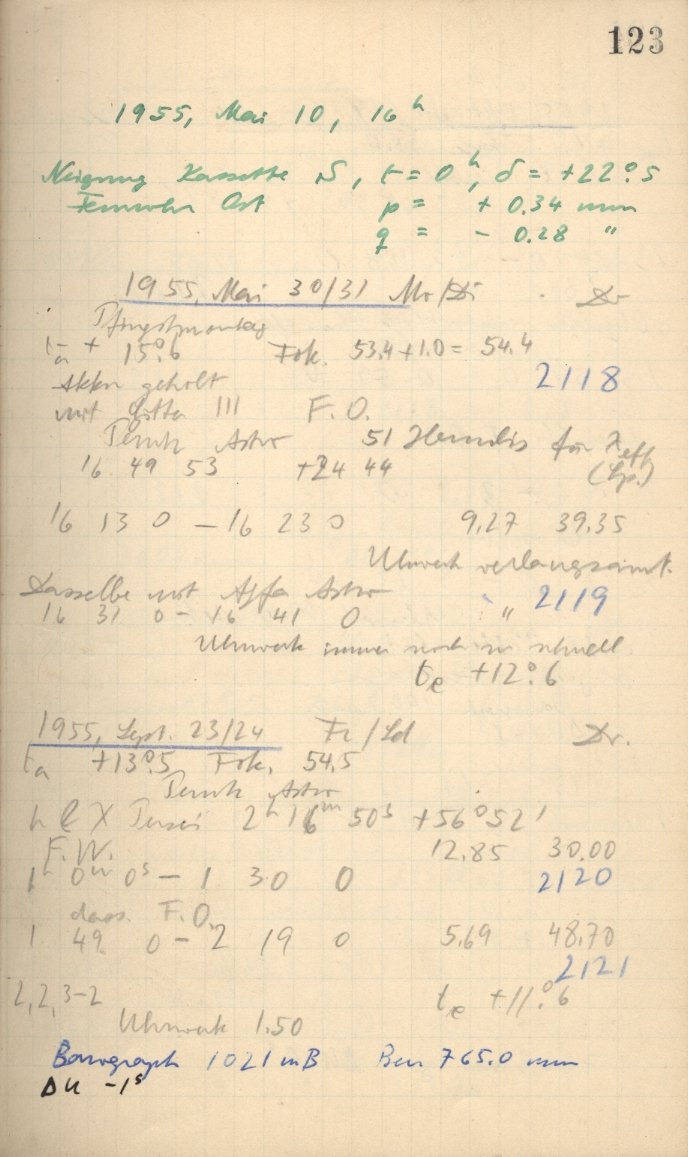 123
1955, Mai 10, 16h
Neigung Kassette S, t = 0h, δ = +22°.5
Fernrohr Ost p = + 0.34 mm
q = - 0.28 "
1955, Mai 30/31 Mo/Di Dr
Pfingstmontag
ta + 15°.6 Fok. 53.4+1.0 = 54.4
Akku geholt 2118
mit Gitter III F.O.
Astro 51 Herculis für λeff
16 49 53 +24 44 (Sp.)
16 13 0 - 16 23 0 9.27 39.35
Uhrwerk verlangsamt.
Dasselbe mit Agfa Astro " 2119
16 31 0 - 16 41 0
Uhrwerk immer noch zu schnell
te +12°.6
1955, Sept. 23/24 Fr/Sd Dr.
ta +13°.5 Fok. 54.5
Astro
h & χ Persei 2h 16m 50s +56°52'
F.W. 12.85 30.00
1h 0m 0s - 1 30 0 2120
dass. F.O.
1 49 0 - 2 19 0 5.69 48.70
2121
2,2,3-2 te +11°.6
Uhrwerk 1.50
Barograph 1021 mB Bar 765.0 mm
Δu -1s